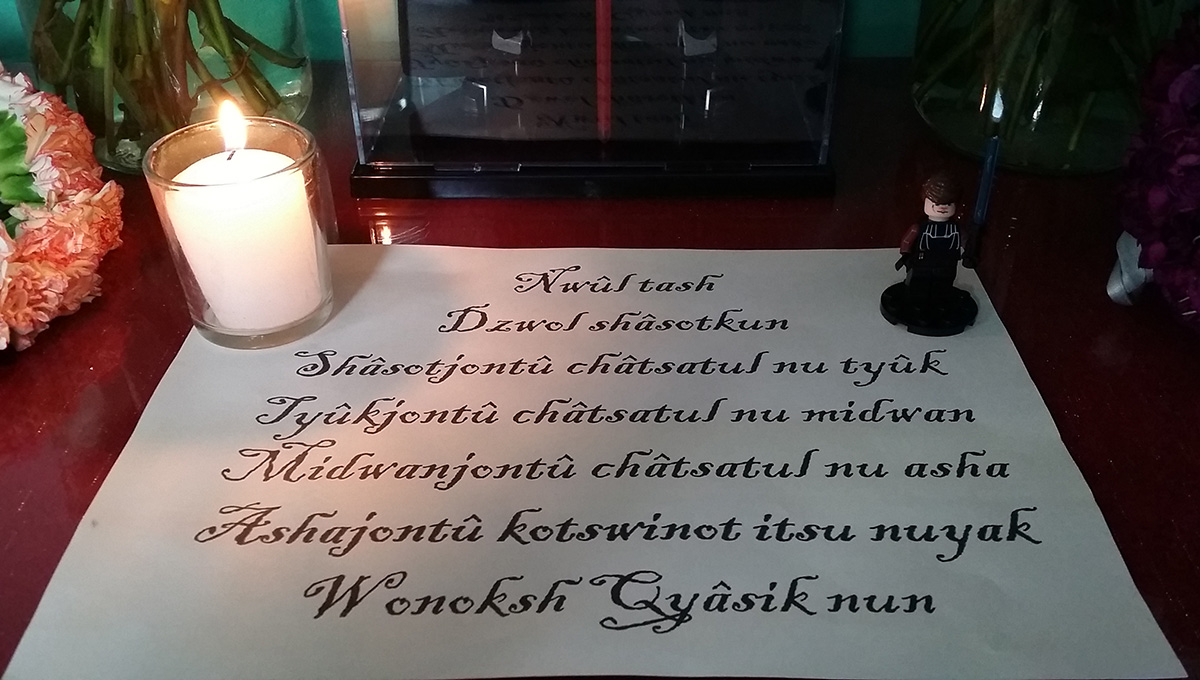 Nwûl tash
Dzwol shâsotkun
Shâsotjontû châtsatul nu tyûk
Tyûkjontû châtsatul nu midwan
Midwanjontû châtsatul nu asha
Ashajontû kotswinot itsu nuyak
Wonoksh Qyâsik nun